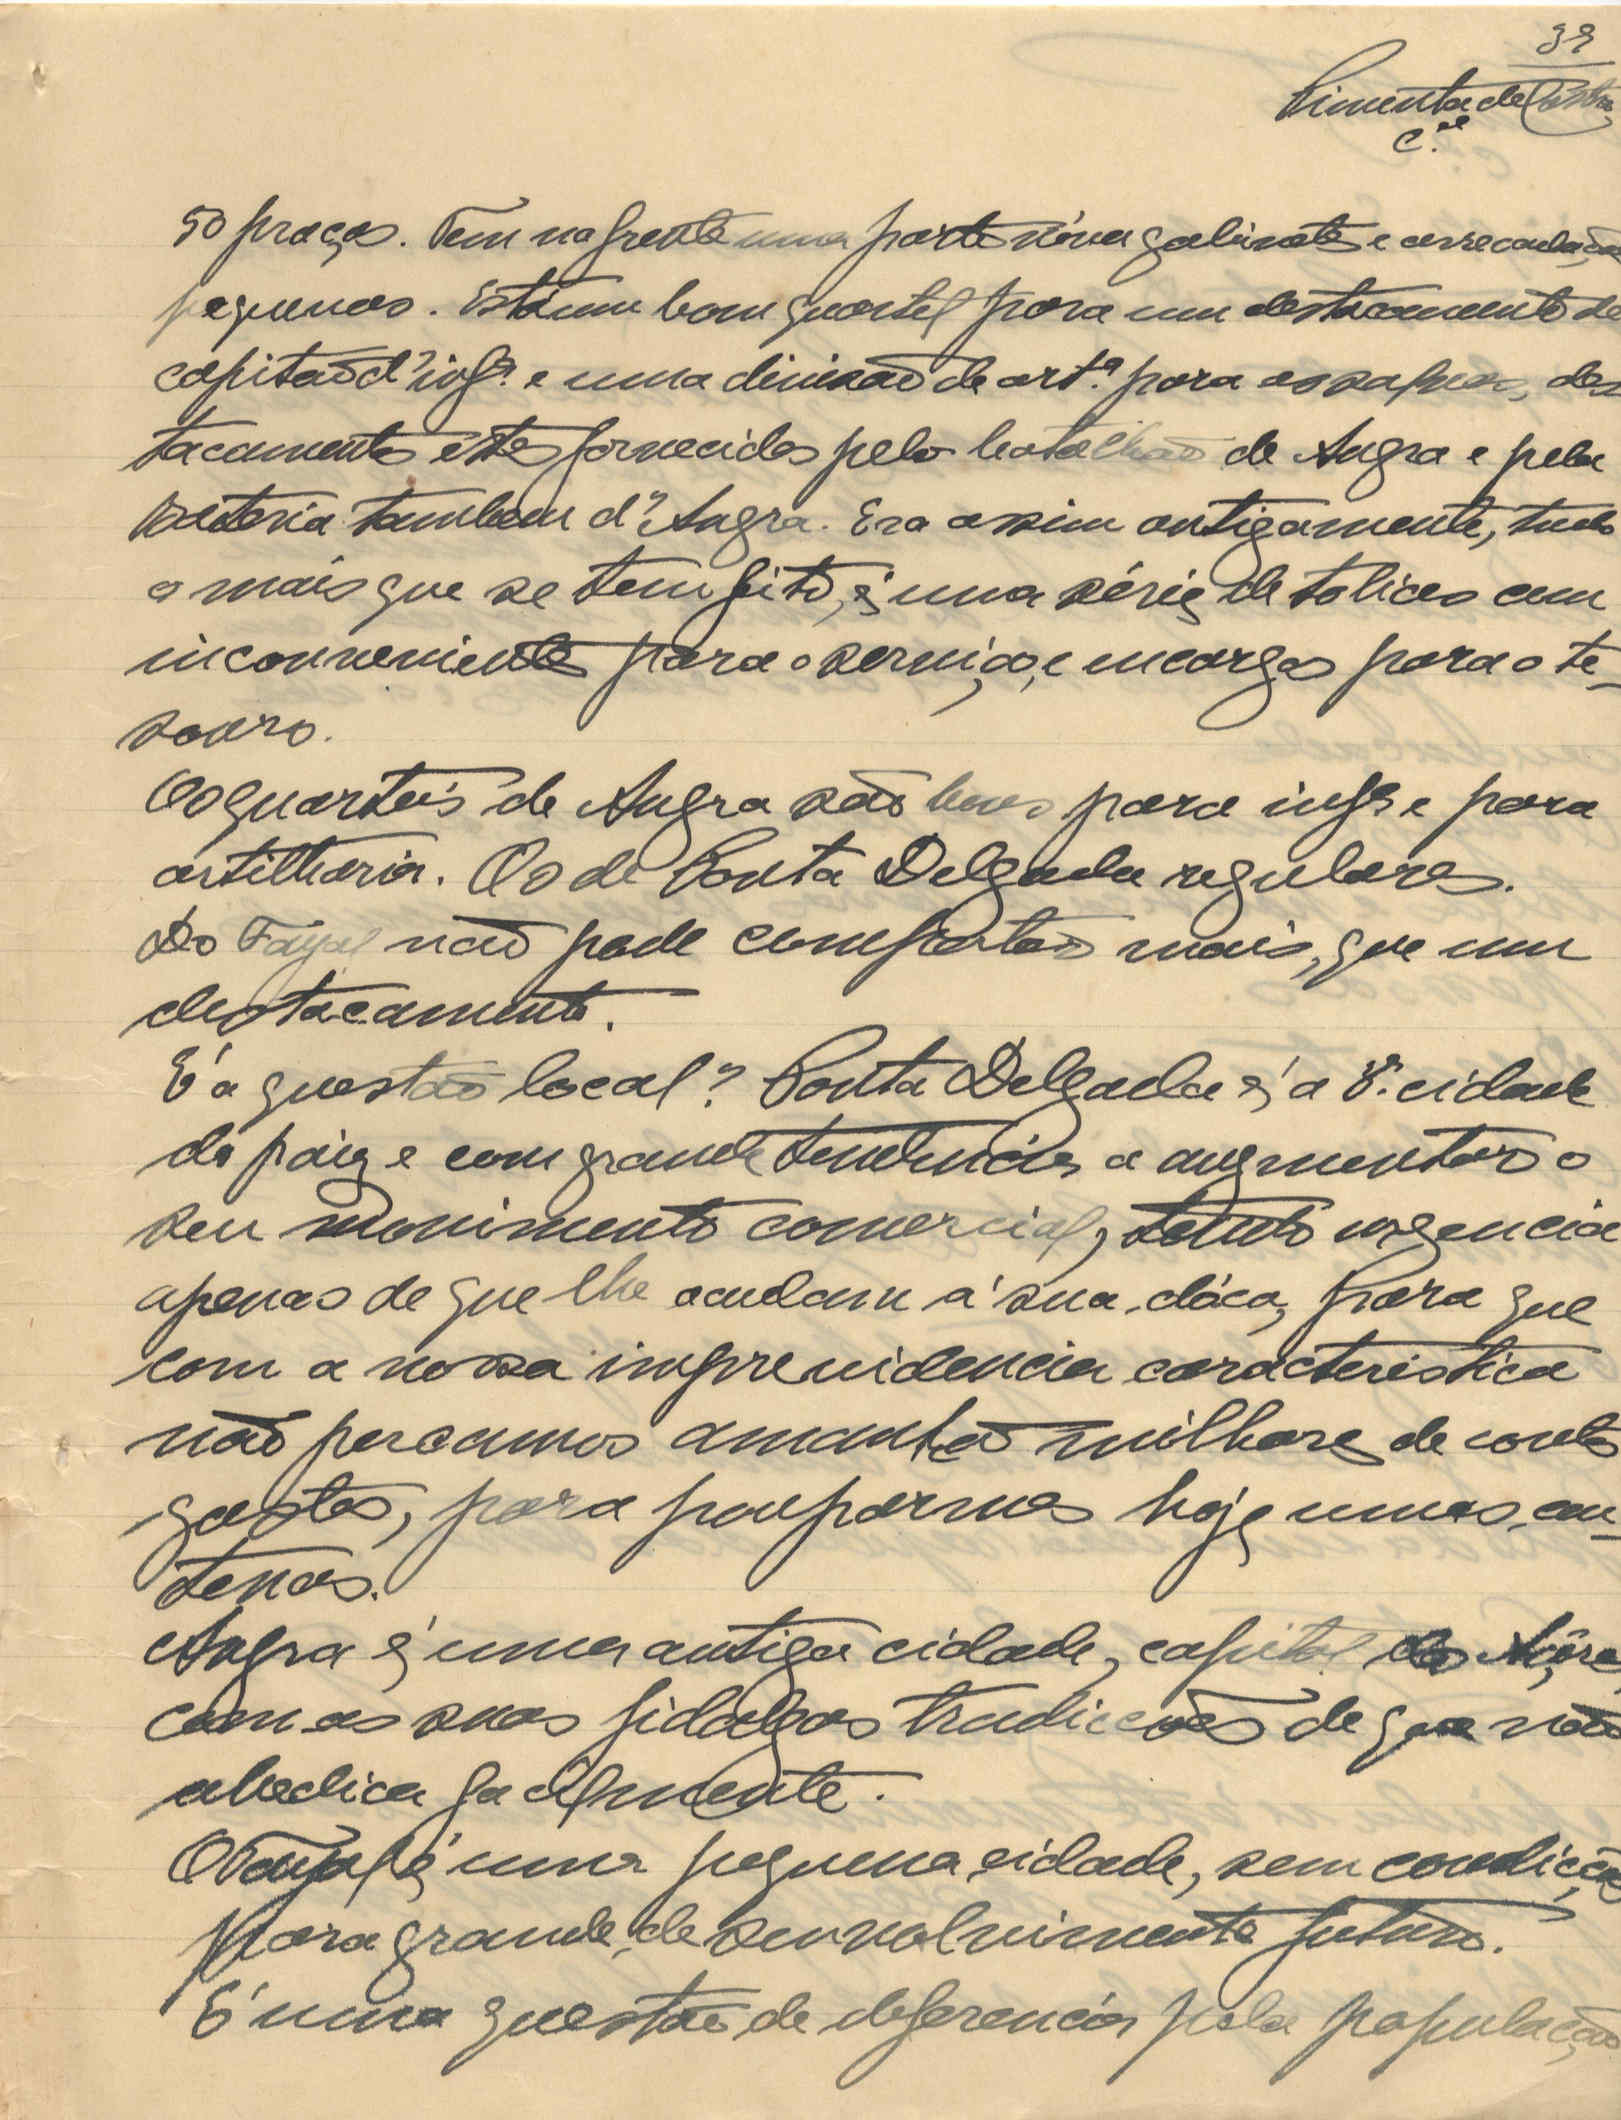 39
Pimenta de Castro
C.el
50 praças. Tem na frente uma parte nóva gabinetes e arrecadações
pequenas. Está um bom quartel para um destacamento de
capitão d'inf.ª e uma divisão de art.ª para as salvas, des
tacamentos êstes fornecidos pelo batalhão de Angra e pela
bateria tambem d'Angra. Era assim antigamente, tudo
o mais que se tem feito, é uma série de tolices com
inconvenientes para o serviço, e encargos para o te_
souro.
Os quarteis de Angra são bons para inf.ª e para
artilharia. Os de Ponta Delgada regulares.
Do Fayal não pode comportar mais, que um
destacamento.
É a questão local? Ponta Delgada é, a 3ª. cidade
do páiz e com grande tendencia a augmentar o
seu movimento comercial, tendo urgencia
apenas de que lhe acudam á sua dóca, para que
com a nossa imprevidencia caracteristica
não percamos amanhã milhares de contos
gastos, para pouparmos hoje umas cen_
tenas.
Angra é, uma antiga cidade, capital dos Açôres
com as suas fidalgas tradicções de que não
abedica facilmente.
O Fayal é uma pequena cidade, sem condicções
para grande desenvolvimento futuro.
É uma questão de deferencia pela população